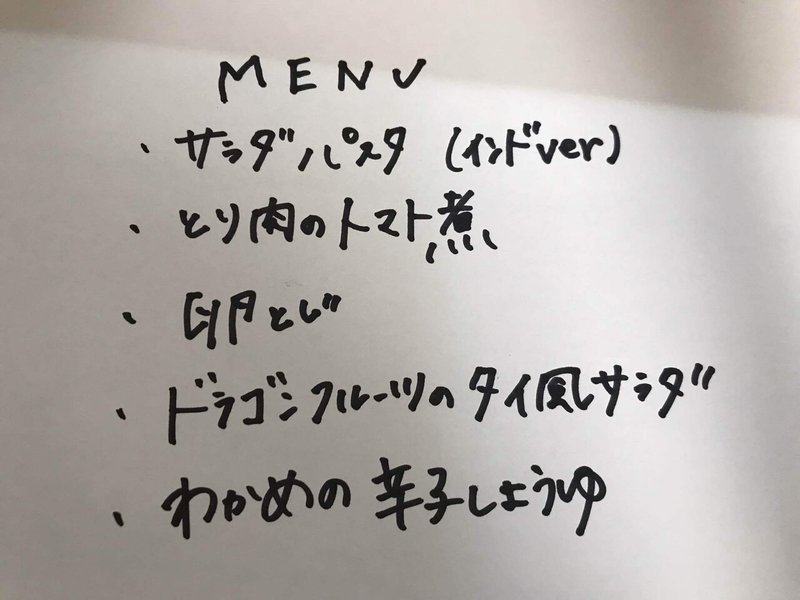 MENU
・サラダパスタ (インドver)
・とり肉のトマト煮
・卵とじ
・ドラゴンフルーツのタイ風サラダ
・わかめの辛子しょうゆ